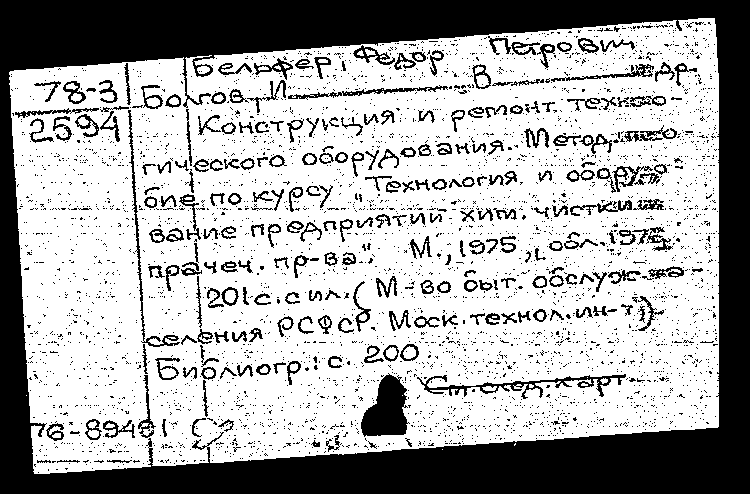 Бельфер, Федор Петрович
78-3 Болгов, И В и др.
2594 Конструкция и ремонт техноло-
гического оборудования. Метод. посо-
бие по курсу "Технология и оборудо-
вание предприятий хим. чистки и
прачеч. пр-ва". М., 1975, обл. 1976.
201 с. с ил. (М-во быт. обслуж. на-
селения РСФСР. Моск. технол. ин-т)
Библиогр.: с. 200
См. след. карт.
76-89491